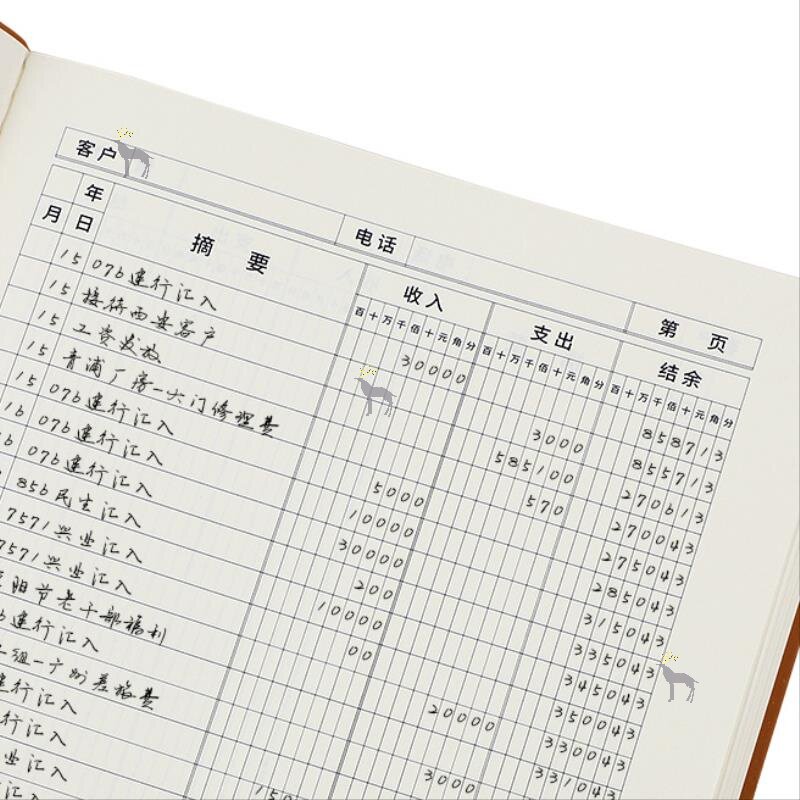 客户 电话 第 页
年
月 日 摘要 收入 支出 结余
百十万千佰十元角分 百十万千佰十元角分 百十万千佰十元角分
15 076建行汇入 30000 858713
15 接待西安客户 3000 855713
15 工资发放 585100 270613
15 青浦厂房一大门修理费 570 270043
15 076建行汇入 5000 275043
16 076建行汇入 10000 285043
6 076建行汇入 30000 315043
856民生汇入 200 335043
7571兴业汇入 10000 345043
7571兴业汇入 00 350043
阳节老干部福利 20000 330043
建行汇入 331043
组一广州差旅费 3000
建行汇入 150
行汇入
业汇入
汇入